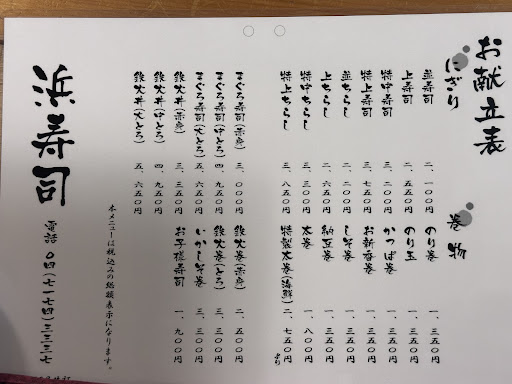 お献立表
にぎり
並寿司 二、一〇〇円
上寿司 二、五五〇円
特中寿司
特上寿司 三、七五〇円
並ちらし
上ちらし 二、六五〇円
特中ちらし
特上ちらし 三、八五〇円
まぐろ寿司(赤身) 三、〇〇〇円
まぐろ寿司(中とろ) 四、九五〇円
まぐろ寿司(大とろ) 五、六五〇円
鉄火丼(赤身)
鉄火丼(中とろ) 四、九五〇円
鉄火丼(大とろ) 五、六五〇円
巻物
のり巻 一、三五〇円
のり玉 一、五五〇円
かっぱ巻 一、三五〇円
お新香巻 一、三五〇円
しそ巻 一、三五〇円
納豆巻 一、三五〇円
太巻 一、八〇〇円
特製太巻(海鮮) 二、七五〇円より
鉄火巻(赤身) 二、五〇〇円
鉄火巻(とろ) 三、三〇〇円
いかしそ巻
お子様寿司 一、九〇〇円
本メニューは税込みの総額表示になります。
浜寿司
電話 〇四(七一七四)三三三七